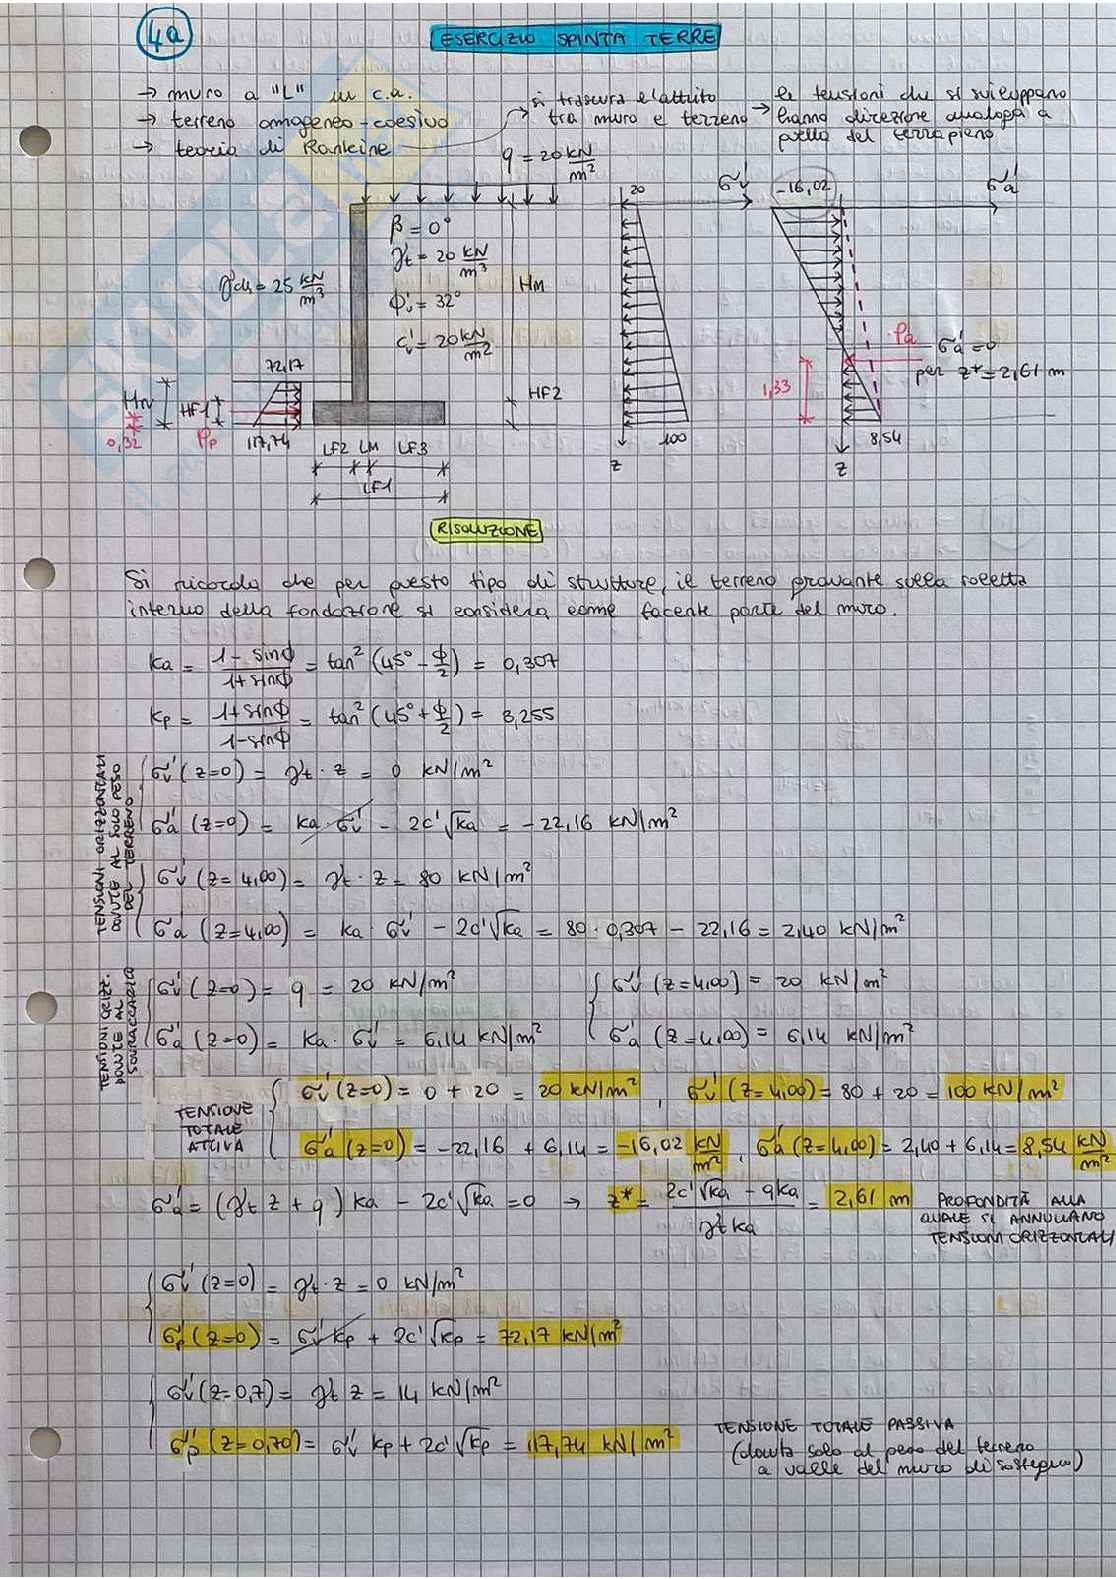 4a
ESERCIZIO SPINTA TERRE
→ muro a "L" in c.a.
→ terreno omogeneo-coesivo
→ teoria di Rankine
si trascura l'attrito
tra muro e terreno →
le tensioni che si sviluppano
hanno direzione analoga a
quella del terrapieno
q = 20 kN/m²
β = 0°
γt = 20 kN/m³
γcls = 25 kN/m³
ϕ' = 32°
c' = 20 kN/m²
HM
HF2
72,17
HN
HF1
0,32
Pp
117,74
LF2 LM LF3
LF1
20
σv'
100
z
-16,02
σa'
Pa
σa' = 0
per z* = 2,61 m
1,33
8,54
z
RISOLUZIONE
Si ricorda che per questo tipo di strutture, il terreno gravante sulla soletta
interna della fondazione si considera come facente parte del muro.
Ka = (1 - sinϕ)/(1 + sinϕ) = tan² (45° - ϕ/2) = 0,307
Kp = (1 + sinϕ)/(1 - sinϕ) = tan² (45° + ϕ/2) = 3,255
TENSIONI ORIZZONTALI
DOVUTE AL SOLO PESO
DEL TERRENO
σv' (z=0) = γt · z = 0 kN/m²
σa' (z=0) = Ka · σv' - 2c'√Ka = -22,16 kN/m²
σv' (z=4,00) = γt · z = 80 kN/m²
σa' (z=4,00) = Ka · σv' - 2c'√Ka = 80 · 0,307 - 22,16 = 2,40 kN/m²
TENSIONI ORIZZ.
DOVUTE AL
SOVRACCARICO
σv' (z=0) = q = 20 kN/m²
σv' (z=4,00) = 20 kN/m²
σa' (z=0) = Ka · σv' = 6,14 kN/m²
σa' (z=4,00) = 6,14 kN/m²
TENSIONE
TOTALE
ATTIVA
σv' (z=0) = 0 + 20 = 20 kN/m² , σv' (z=4,00) = 80 + 20 = 100 kN/m²
σa' (z=0) = -22,16 + 6,14 = -16,02 kN/m² , σa' (z=4,00) = 2,40 + 6,14 = 8,54 kN/m²
σa' = (γt z + q) Ka - 2c'√Ka = 0 → z* = (2c'√Ka - qKa)/(γt Ka) = 2,61 m
PROFONDITÀ ALLA
QUALE SI ANNULLANO
TENSIONI ORIZZONTALI
σv' (z=0) = γt · z = 0 kN/m²
σp' (z=0) = σv' Kp + 2c'√Kp = 72,17 kN/m²
σv' (z=0,7) = γt z = 14 kN/m²
σp' (z=0,70) = σv' Kp + 2c'√Kp = 117,74 kN/m²
TENSIONE TOTALE PASSIVA
(dovuta solo al peso del terreno
a valle del muro di sostegno)